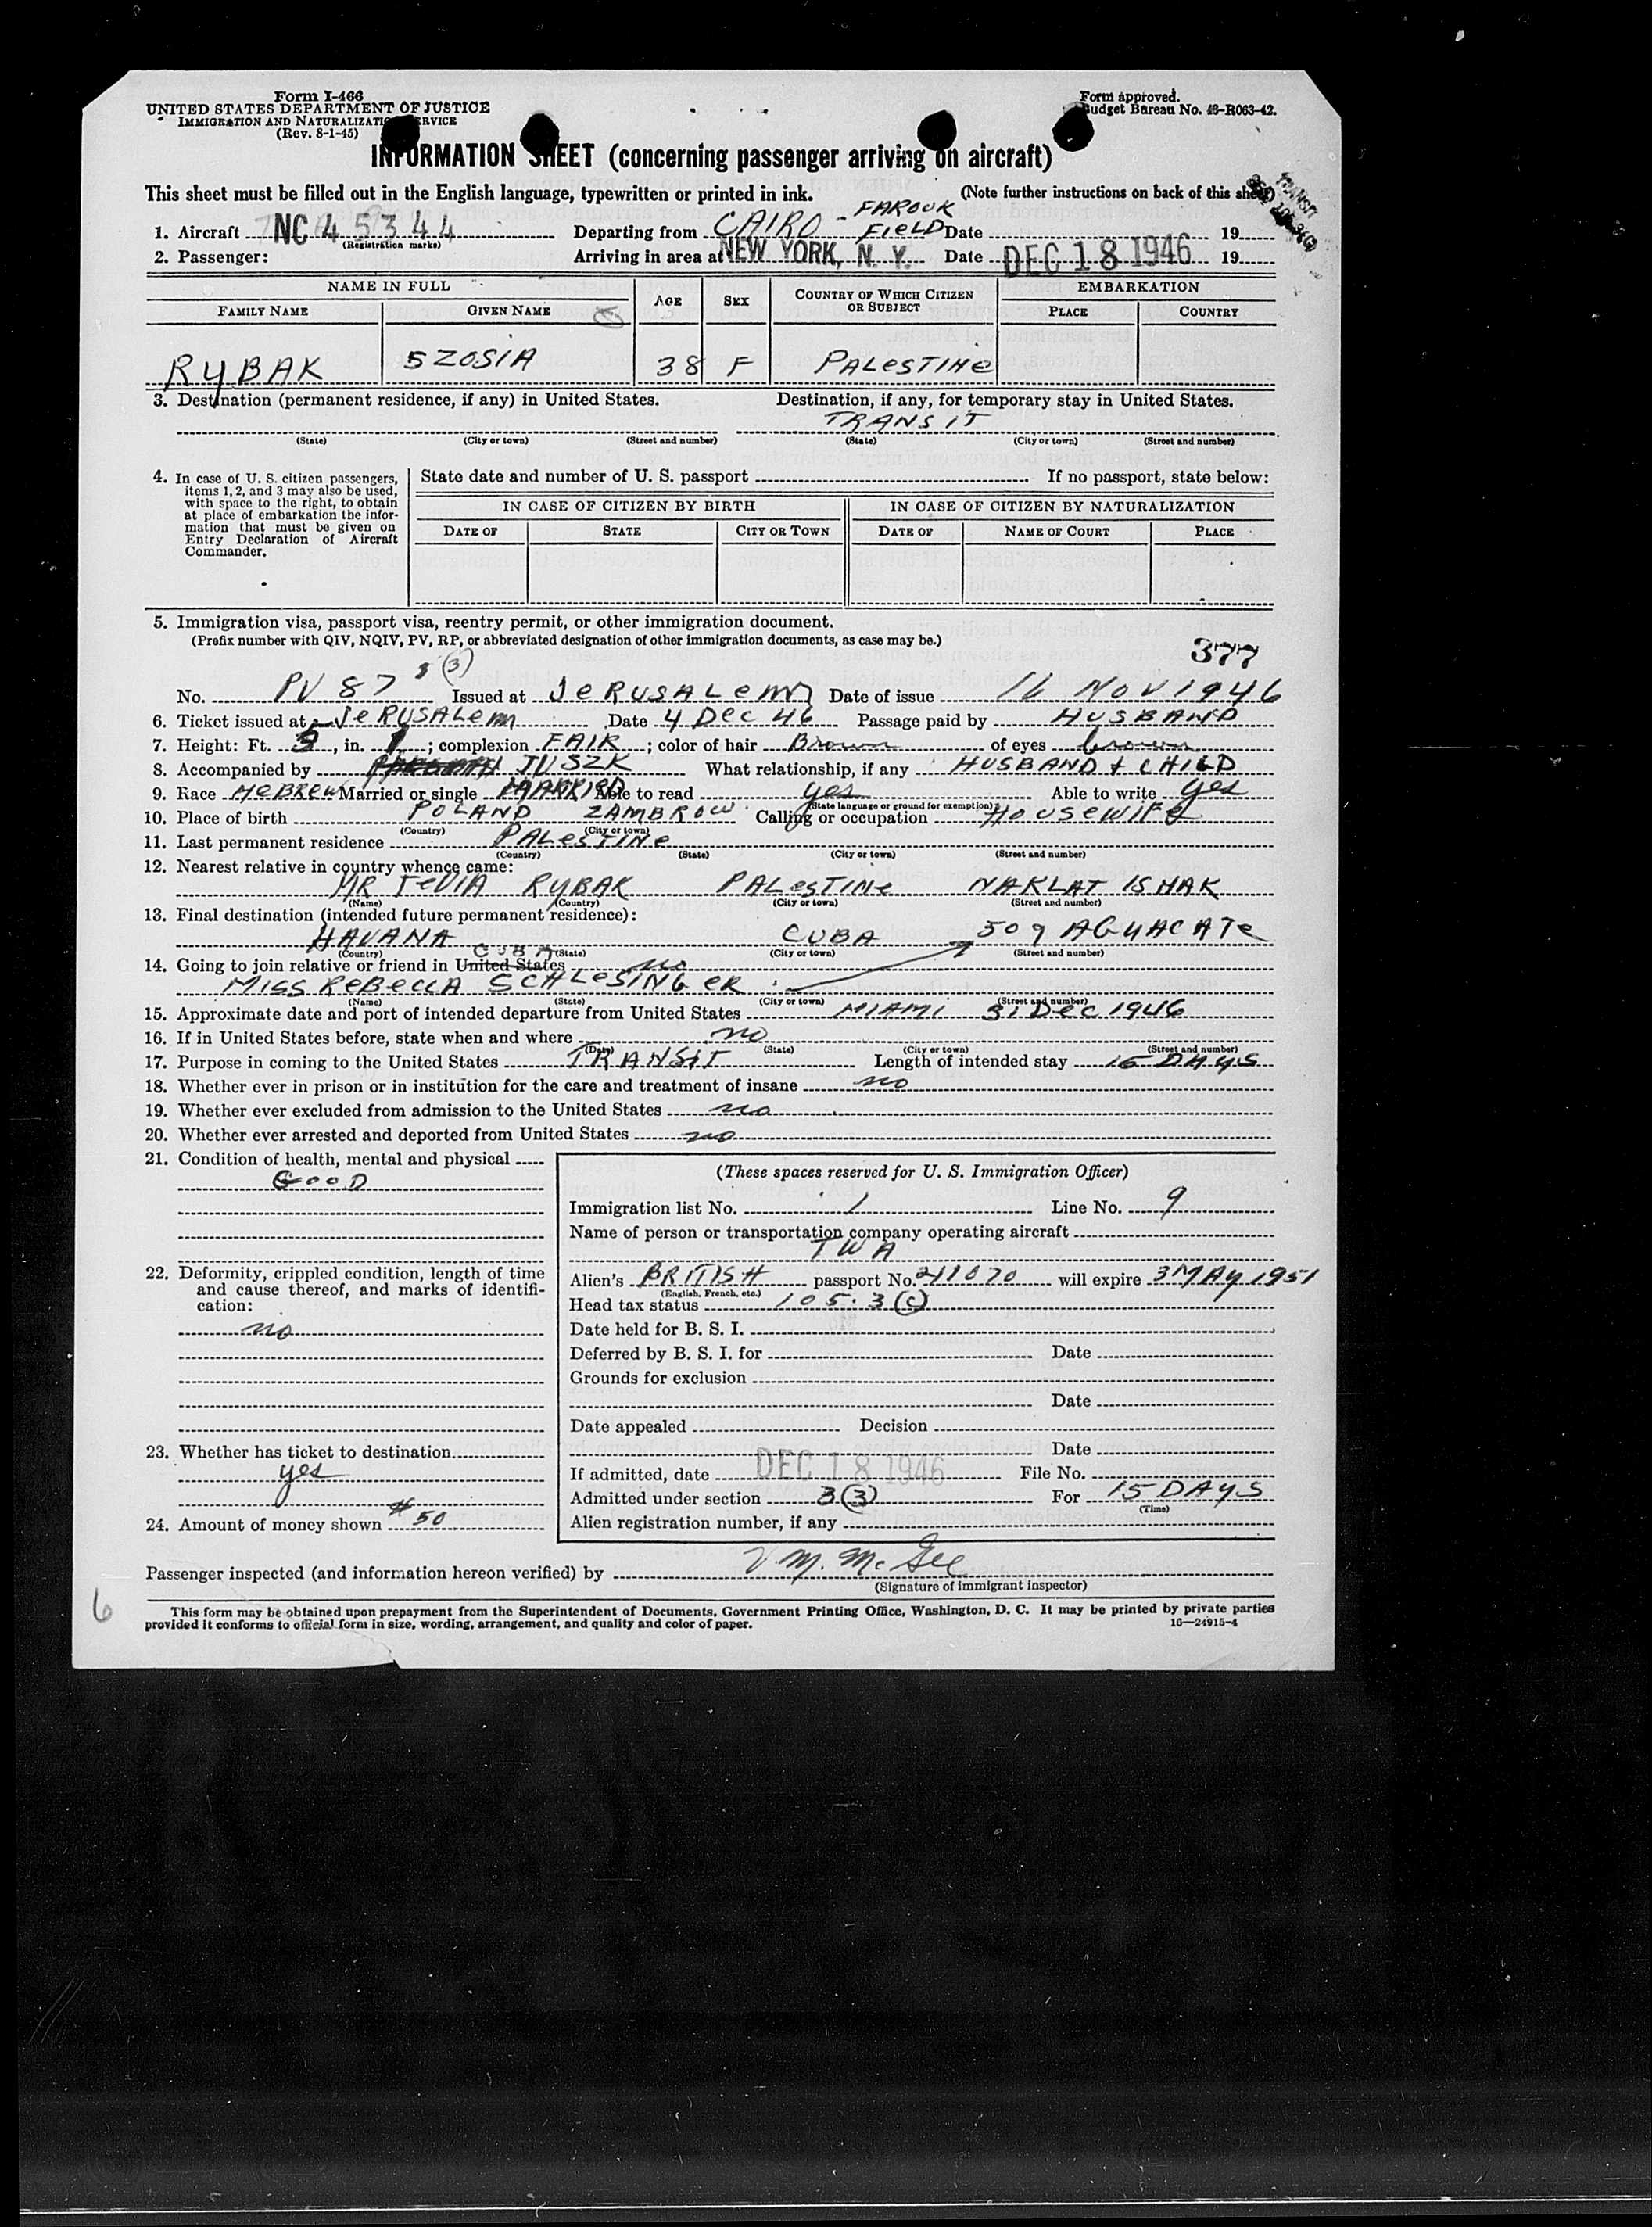 Form I-466
UNITED STATES DEPARTMENT OF JUSTICE
IMMIGRATION AND NATURALIZATION SERVICE
(Rev. 8-1-45)
Form approved.
Budget Bureau No. 43-R063-42.
INFORMATION SHEET (concerning passenger arriving on aircraft)
This sheet must be filled out in the English language, typewritten or printed in ink. (Note further instructions on back of this sheet)
1. Aircraft NC 45344 Departing from CAIRO - FAROUK FIELD Date 19
(Registration marks)
2. Passenger: Arriving in area at NEW YORK, N. Y. Date DEC 18 1946 19
NAME IN FULL AGE SEX COUNTRY OF WHICH CITIZEN OR SUBJECT EMBARKATION
FAMILY NAME GIVEN NAME PLACE COUNTRY
RYBAK SZOSIA 38 F PALESTINE
3. Destination (permanent residence, if any) in United States. Destination, if any, for temporary stay in United States.
TRANSIT
(State) (City or town) (Street and number) (State) (City or town) (Street and number)
4. In case of U. S. citizen passengers, items 1, 2, and 3 may also be used, with space to the right, to obtain at place of embarkation the information that must be given on Entry Declaration of Aircraft Commander.
State date and number of U. S. passport If no passport, state below:
IN CASE OF CITIZEN BY BIRTH IN CASE OF CITIZEN BY NATURALIZATION
DATE OF STATE CITY OR TOWN DATE OF NAME OF COURT PLACE
5. Immigration visa, passport visa, reentry permit, or other immigration document.
(Prefix number with QIV, NQIV, PV, RP, or abbreviated designation of other immigration documents, as case may be.)
377
3 (3)
No. PV 87 Issued at JERUSALEM Date of issue 16 NOV 1946
6. Ticket issued at JERUSALEM Date 4 DEC 46 Passage paid by HUSBAND
7. Height: Ft. 5, in. 1; complexion FAIR; color of hair Brown of eyes brown
8. Accompanied by JUSZK What relationship, if any HUSBAND + CHILD
9. Race HEBREW Married or single MARRIED Able to read yes Able to write yes
(State language or ground for exemption)
10. Place of birth POLAND ZAMBROW Calling or occupation HOUSEWIFE
(Country) (City or town)
11. Last permanent residence PALESTINE
(Country) (State) (City or town) (Street and number)
12. Nearest relative in country whence came:
MR TEVIA RYBAK PALESTINE NAKLAT ISHAK
(Name) (Country) (City or town) (Street and number)
13. Final destination (intended future permanent residence):
HAVANA CUBA 509 AGUACATE
(Country) (State) (City or town) (Street and number)
CUBA
14. Going to join relative or friend in United States no
MISS REBECCA SCHLESINGER
(Name) (State) (City or town) (Street and number)
15. Approximate date and port of intended departure from United States MIAMI 31 DEC 1946
16. If in United States before, state when and where no
(Date) (State) (City or town) (Street and number)
17. Purpose in coming to the United States TRANSIT Length of intended stay 15 DAYS
18. Whether ever in prison or in institution for the care and treatment of insane no
19. Whether ever excluded from admission to the United States no
20. Whether ever arrested and deported from United States no
21. Condition of health, mental and physical
GOOD
22. Deformity, crippled condition, length of time and cause thereof, and marks of identification:
no
23. Whether has ticket to destination
yes
24. Amount of money shown $50
(These spaces reserved for U. S. Immigration Officer)
Immigration list No. 1 Line No. 9
Name of person or transportation company operating aircraft
TWA
Alien's BRITISH passport No. 211070 will expire 3 MAY 1951
(English, French, etc.)
Head tax status 105.3(c)
Date held for B. S. I.
Deferred by B. S. I. for Date
Grounds for exclusion
Date
Date appealed Decision
Date
If admitted, date DEC 18 1946 File No.
Admitted under section 3(3) For 15 DAYS
(Time)
Alien registration number, if any
Passenger inspected (and information hereon verified) by V. M. McGee
(Signature of immigrant inspector)
6
This form may be obtained upon prepayment from the Superintendent of Documents, Government Printing Office, Washington, D. C. It may be printed by private parties
provided it conforms to official form in size, wording, arrangement, and quality and color of paper. 16—24915-4